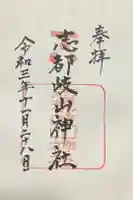 奉拝
志都岐山神社
令和三年十一月二八日